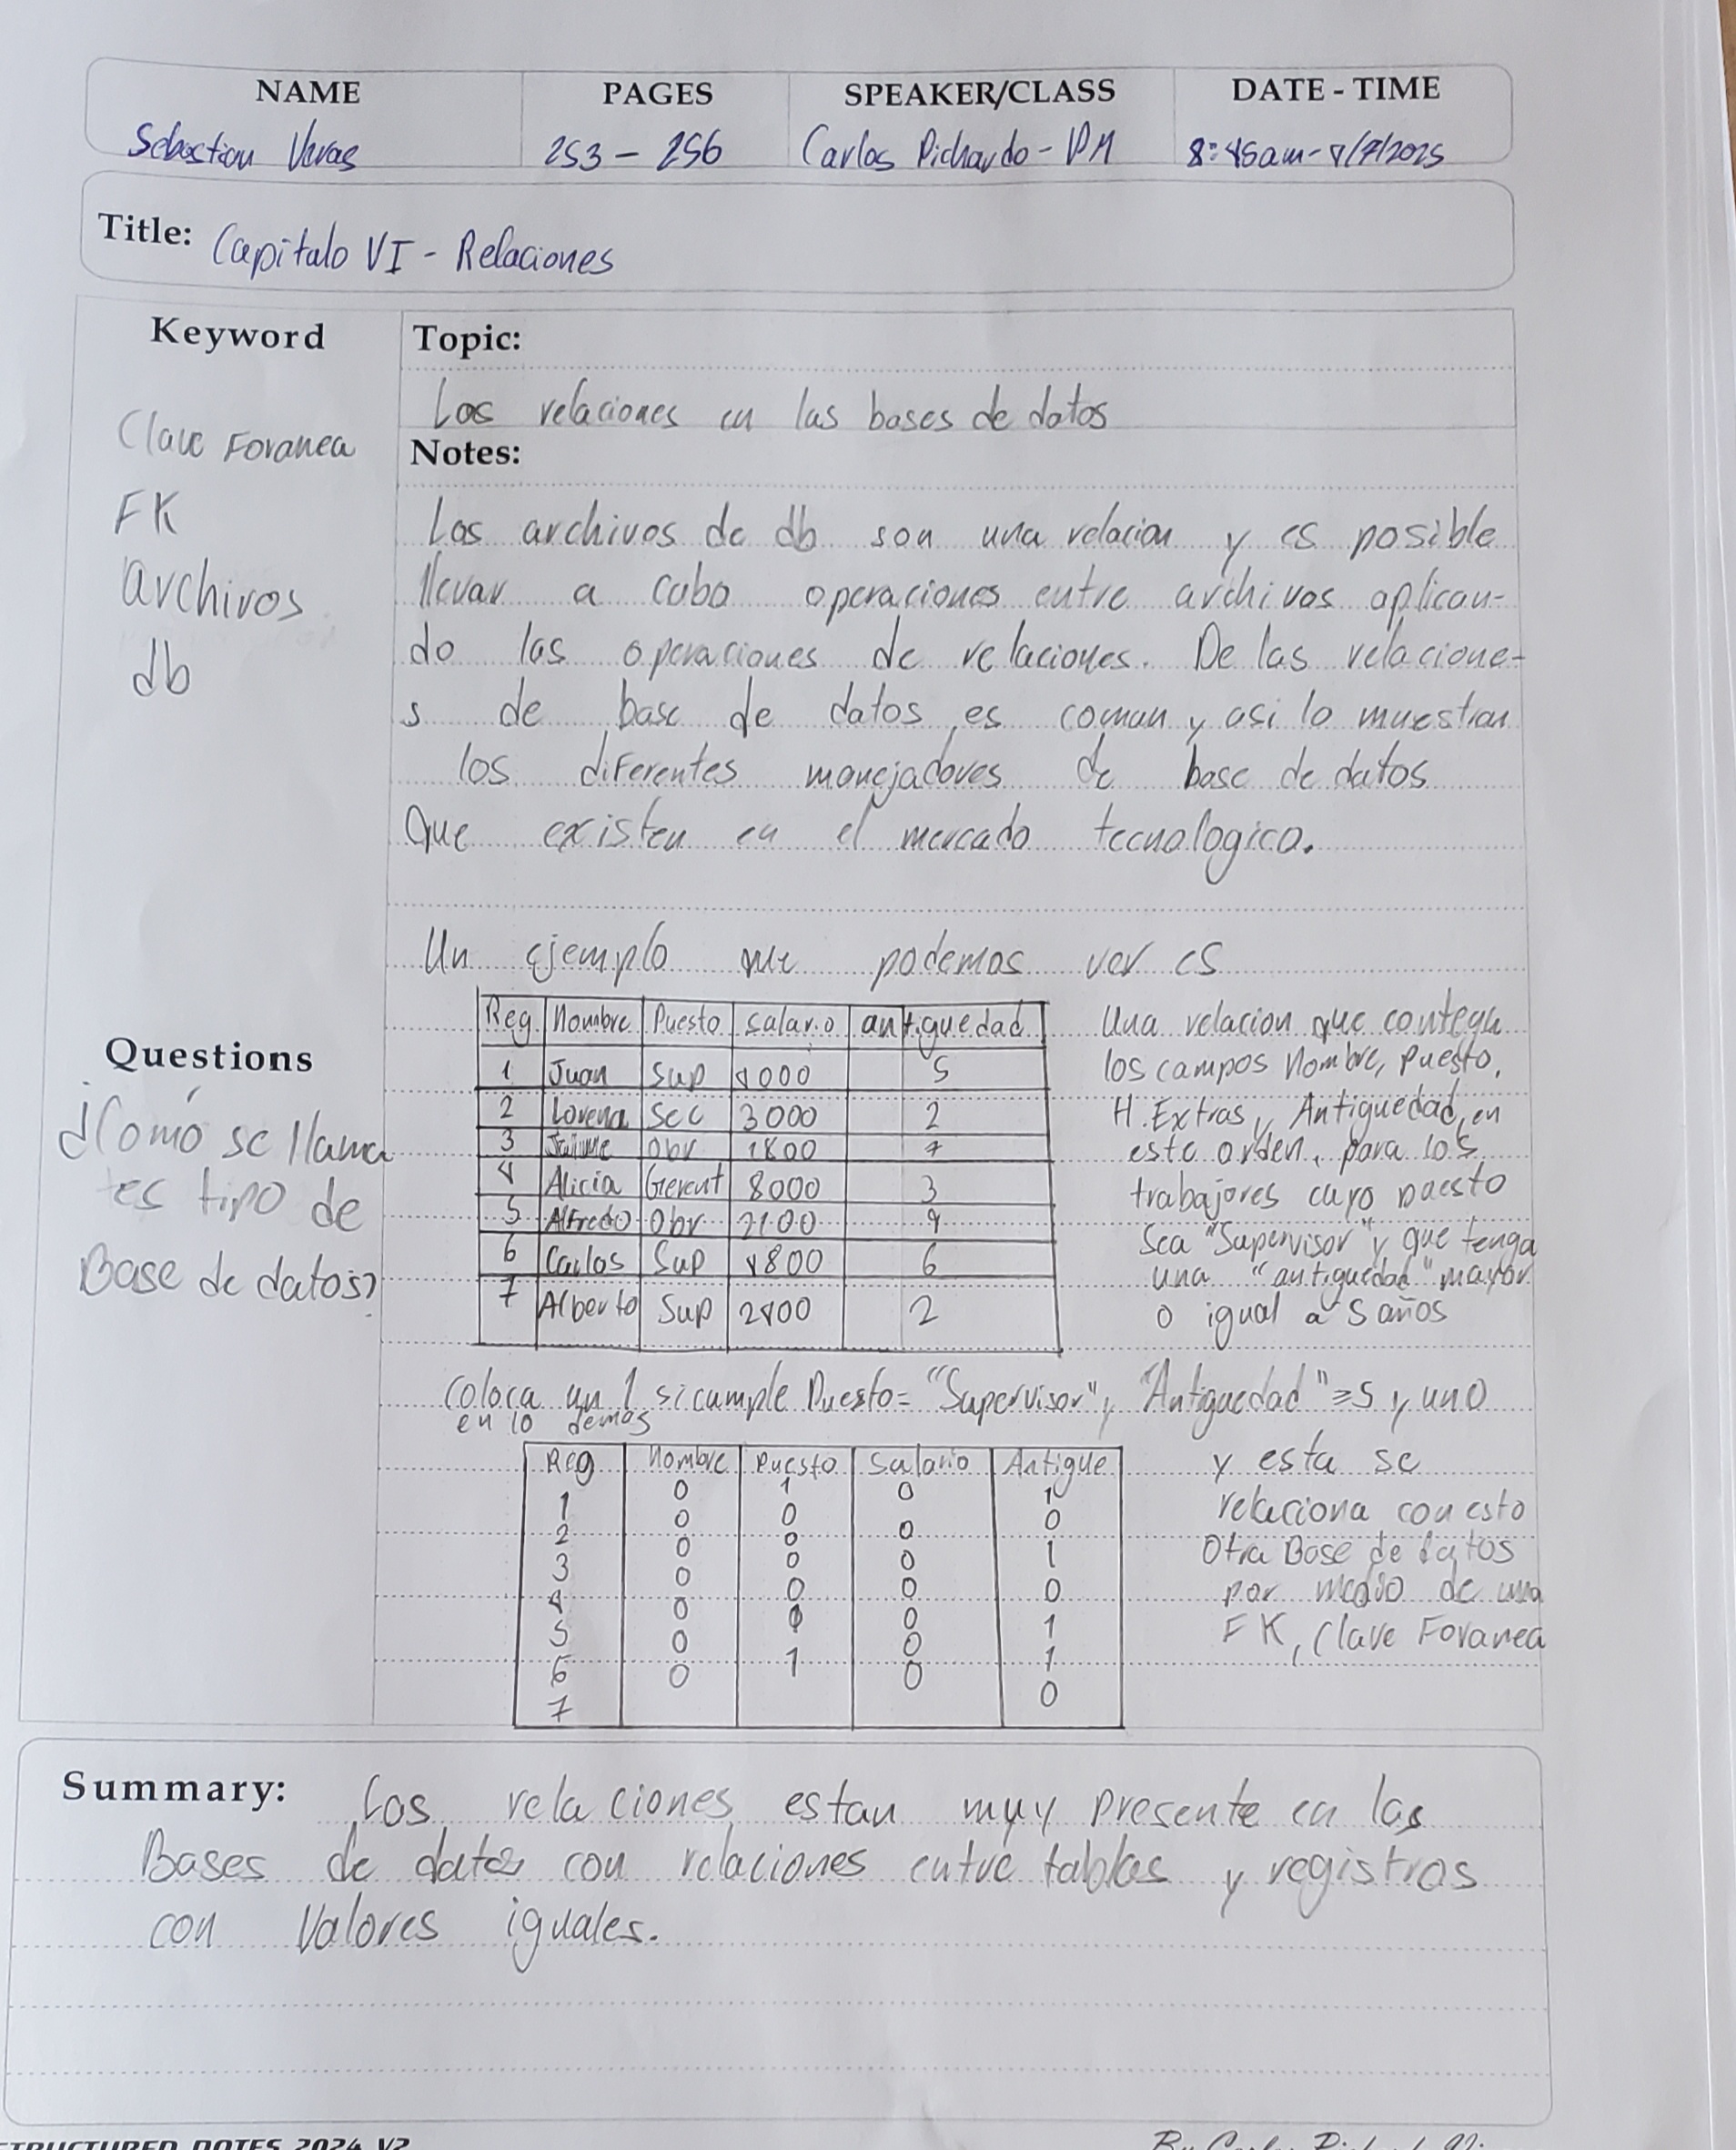 NAME PAGES SPEAKER/CLASS DATE - TIME
Sebastian Veras 253 - 256 Carlos Pichardo - PM 8:45am - 7/2025
Title: Capitulo VI - Relaciones
Keyword
Clave Foranea
FK
archivos
db
Topic:
Las relaciones en las bases de datos
Notes:
Los archivos de db son una relacion y es posible
llevar a cabo operaciones entre archivos aplican-
do las operaciones de relaciones. De las relacione-
s de base de datos es comun y asi lo muestran
los diferentes manejadores de base de datos
Que existen en el mercado tecnologico.
Un ejemplo que podemos ver es
Questions
¿Como se llama
tes tipo de
Base de datos?
Reg Nombre Puesto Salario antiguedad
1 Juan Sup 4000 5
2 Lorena Sec 3000 2
3 Jaime Obr 1800 7
4 Alicia Gerent 8000 3
5 Alfredo Obr 2100 9
6 Carlos Sup 4800 6
7 Alberto Sup 2400 2
Una relacion que contega
los campos Nombre, Puesto,
H. Extras y Antiguedad, en
este orden, para los
trabajores cuyo puesto
Sea "Supervisor" y que tenga
una "antiguedad" mayor
o igual a 5 años
Coloca un 1 si cumple Puesto = "Supervisor" y "Antiguedad" ≥ 5 y un 0
en lo demas
Reg Nombre Puesto Salario Antigue
1 0 1 0 1
2 0 0 0 0
3 0 0 0 1
4 0 0 0 0
5 0 0 0 1
6 0 0 1
7 0 1 0 0
y esta se
relaciona con esto
Otra Base de datos
por medio de una
FK, Clave Foranea
Summary: Las relaciones estan muy presente en las
Bases de datos con relaciones entre tablas y registros
con Valores iguales.
STRUCTURED NOTES 2024 V2
By Carlos